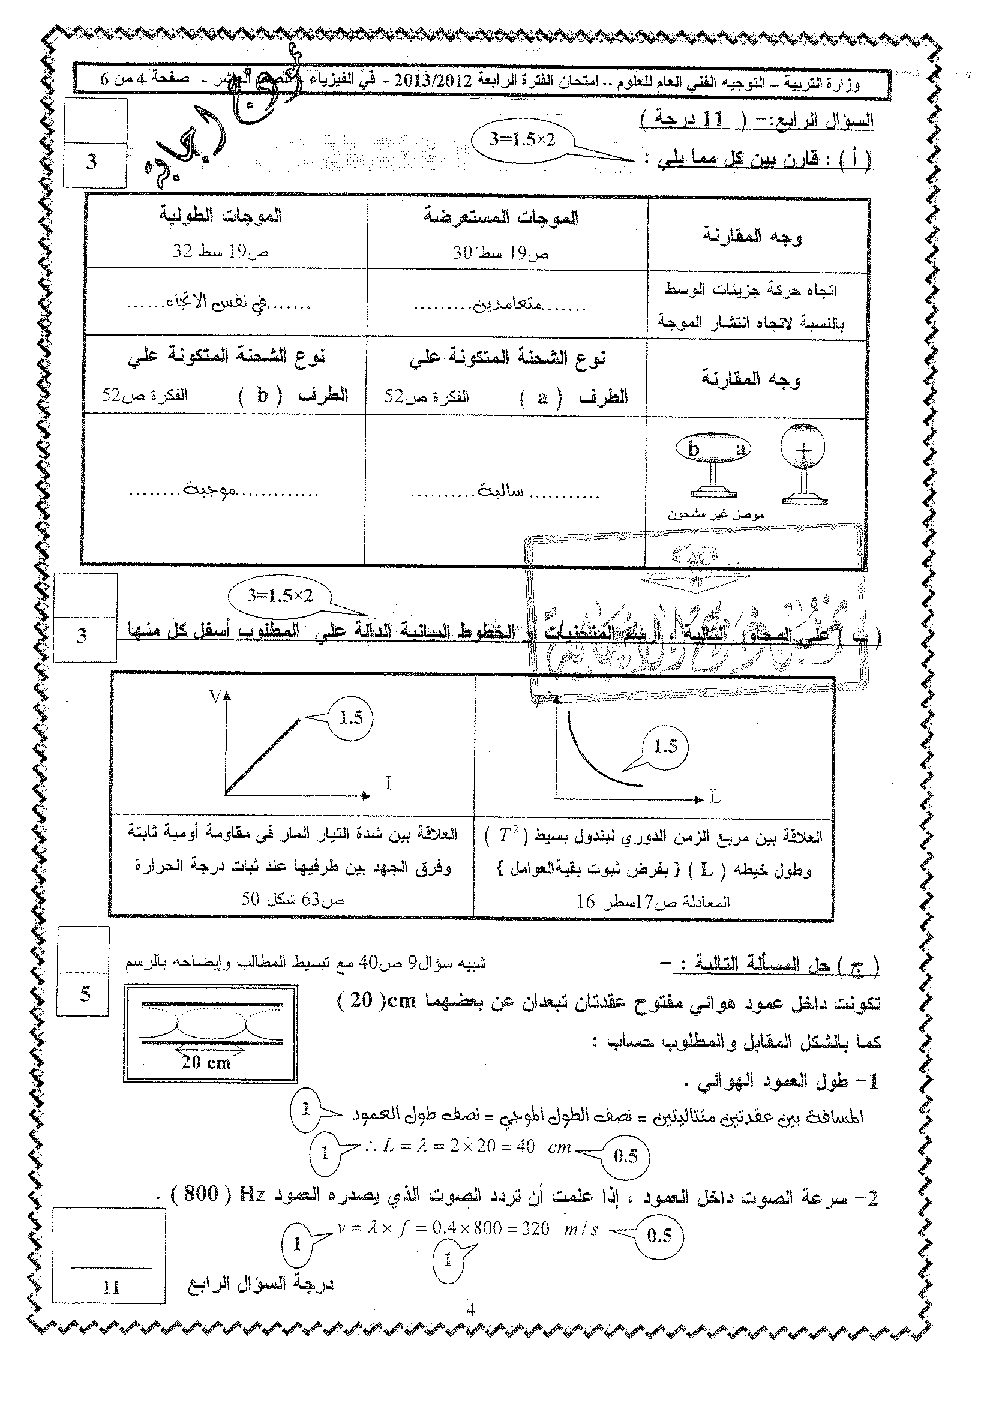 وزارة التربية – التوجيه الفني العام للعلوم .. امتحان الفترة الرابعة 2013/2012 - في الفيزياء - صفحة 4 من 6
السؤال الرابع:- ( 11 درجة )
3=1.5×2
3
( أ ) : قارن بين كل مما يلي :
وجه المقارنة
الموجات المستعرضة
ص19 سطر 30
الموجات الطولية
ص19 سط 32
اتجاه حركة جزيئات الوسط
بالنسبة لاتجاه انتشار الموجة
.......متعامدين..........
.......في نفس الاتجاه......
وجه المقارنة
نوع الشحنة المتكونة علي
الطرف ( a ) الفكرة ص52
نوع الشحنة المتكونة علي
الطرف ( b ) الفكرة ص52
b a +
موصل غير مشحون
........... سالبة ..........
............موجبة.........
3=1.5×2
3
التالية المنحنيات الخطوط البيانية الدالة علي المطلوب أسفل كل منها
V
1.5
I
1.5
L
العلاقة بين مربع الزمن الدوري لبندول بسيط ( T² )
وطول خيطه ( L ) { بفرض ثبوت بقية العوامل }
المعادلة ص17سطر 16
العلاقة بين شدة التيار المار في مقاومة أومية ثابتة
وفرق الجهد بين طرفيها عند ثبات درجة الحرارة
ص63 شكل 50
( ج ) حل المسألة التالية : -
شبيه سؤال9 ص40 مع تبسيط المطالب وإيضاحه بالرسم
5
تكونت داخل عمود هوائي مفتوح عقدتان تبعدان عن بعضهما cm( 20 )
كما بالشكل المقابل والمطلوب حساب :
20 cm
1- طول العمود الهوائي .
المسافة بين عقدتين متتاليتين = نصف الطول الموجي = نصف طول العمود
1
∴ L = λ = 2 × 20 = 40 cm
1
0.5
2- سرعة الصوت داخل العمود ، إذا علمت أن تردد الصوت الذي يصدره العمود Hz ( 800 ) .
v = λ × f = 0.4 × 800 = 320 m / s
1
1
0.5
11
درجة السؤال الرابع
4